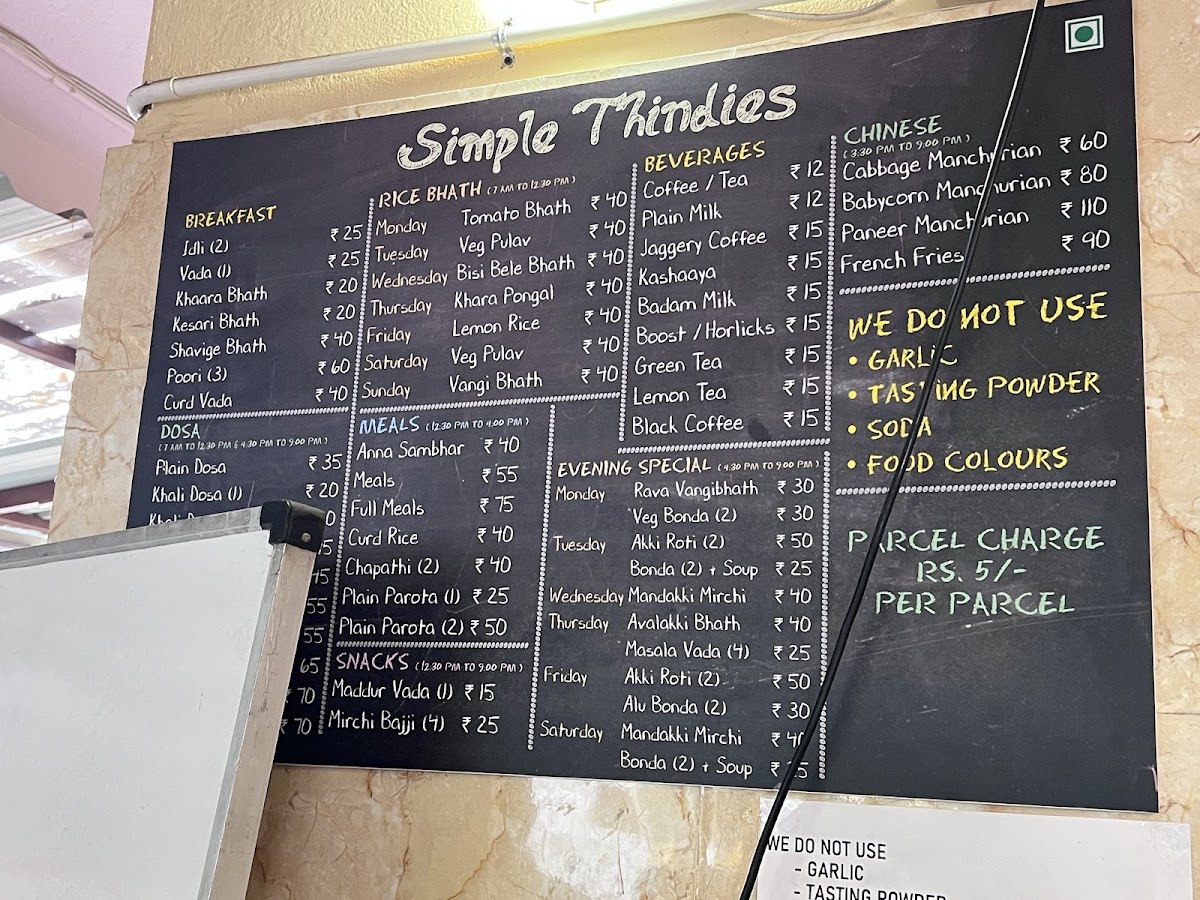 Simple Thindies
BREAKFAST
Idli (2) ₹ 25
Vada (1) ₹ 25
Khaara Bhath ₹ 20
Kesari Bhath ₹ 20
Shavige Bhath ₹ 40
Poori (3) ₹ 60
Curd Vada ₹ 40
DOSA
(7 AM TO 12:30 PM & 4:30 PM TO 9:00 PM)
Plain Dosa ₹ 35
Khali Dosa (1) ₹ 20
Khali
55
55
65
₹ 70
₹ 70
RICE BHATH (7 AM TO 12:30 PM)
Monday Tomato Bhath ₹ 40
Tuesday Veg Pulav ₹ 40
Wednesday Bisi Bele Bhath ₹ 40
Thursday Khara Pongal ₹ 40
Friday Lemon Rice ₹ 40
Saturday Veg Pulav ₹ 40
Sunday Vangi Bhath ₹ 40
MEALS (12:30 PM TO 4:00 PM)
Anna Sambhar ₹ 40
Meals ₹ 55
Full Meals ₹ 75
Curd Rice ₹ 40
Chapathi (2) ₹ 40
Plain Parota (1) ₹ 25
Plain Parota (2) ₹ 50
SNACKS (12:30 PM TO 9:00 PM)
Maddur Vada (1) ₹ 15
Mirchi Bajji (4) ₹ 25
BEVERAGES
Coffee / Tea ₹ 12
Plain Milk ₹ 12
Jaggery Coffee ₹ 15
Kashaaya ₹ 15
Badam Milk ₹ 15
Boost / Horlicks ₹ 15
Green Tea ₹ 15
Lemon Tea ₹ 15
Black Coffee ₹ 15
EVENING SPECIAL (4:30 PM TO 9:00 PM)
Monday Rava Vangibhath ₹ 30
Veg Bonda (2) ₹ 30
Tuesday Akki Roti (2) ₹ 50
Bonda (2) + Soup ₹ 25
Wednesday Mandakki Mirchi ₹ 40
Thursday Avalakki Bhath ₹ 40
Masala Vada (4) ₹ 25
Friday Akki Roti (2) ₹ 50
Alu Bonda (2) ₹ 30
Saturday Mandakki Mirchi ₹ 40
Bonda (2) + Soup ₹ 25
CHINESE
(3:30 PM TO 9:00 PM)
Cabbage Manchurian ₹ 60
Babycorn Manchurian ₹ 80
Paneer Manchurian ₹ 110
French Fries ₹ 90
WE DO NOT USE
• GARLIC
• TASTING POWDER
• SODA
• FOOD COLOURS
PARCEL CHARGE
RS. 5/-
PER PARCEL
WE DO NOT USE
- GARLIC
- TASTING POWDER